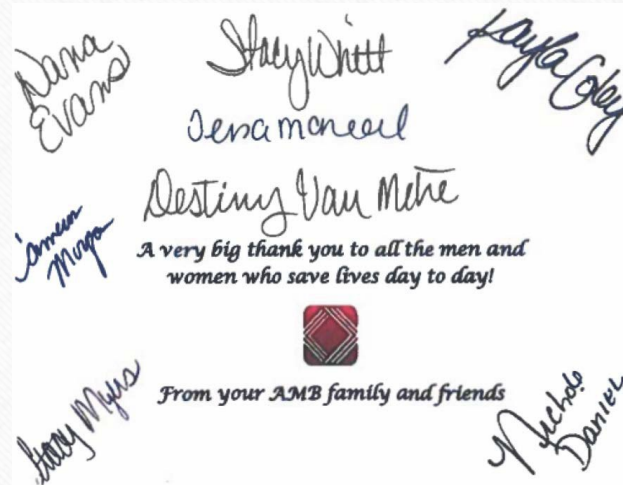 Dana
Evans
Stacy Whitt
Kayla Coley
mcneel
Destiny Van Metre
Morgan
A very big thank you to all the men and
women who save lives day to day!
From your AMB family and friends
Stacy Myers
Nichole
Daniel